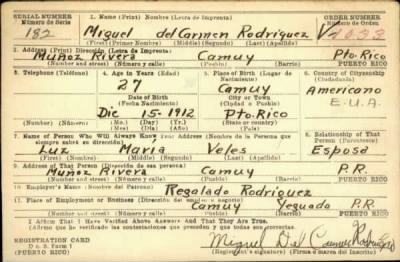 SERIAL NUMBER 1. Name (Print) Nombre (Letra de Imprenta) ORDER NUMBER
Número de Serie Número de Orden
182 Miguel del Carmen Rodriquez V-1033
(First) (Primer Nombre) (Middle) (Segundo) (Last) (Apellido)
2. Address (Print) Dirección (Letra de Imprenta)
Muñoz Rivera Camuy Pto. Rico
(Number and street) (Número y calle) (Pueblo) (Barrio) PUERTO RICO
3. Telephone (Teléfono) 4. Age in Years (Edad) 5. Place of Birth (Lugar de Nacimiento) 6. Country of Citizenship (Ciudadanía)
27 Camuy Americano
Date of Birth (Fecha Nacimiento) City or Town (Ciudad o Pueblo)
Dic 15-1912 Pto. Rico E.U.A.
(Mo.) (Day) (Yr.) State or country)
(Mes) (Día) (Año) (Estado o país)
7. Name of Person Who Will Always Know Your Address (Nombre de la Persona que siempre sabrá su dirección) 8. Relationship of That Person (Parentesco)
Luz Maria Veles Esposa
(First) (Primer Nombre) (Middle) (Segundo) (Last) (Apellido)
9. Address of That Person (Dirección de esa persona)
Muñoz Rivera Camuy P.R.
(Number and street) (Número y calle) (Pueblo) (Barrio) PUERTO RICO
10. Employer's Name (Nombre del Patrono)
Regalado Rodriquez
11. Place of Employment or Business (Dirección del empleo o negocio)
Camuy Yeguada P.R.
(Number and street) (Número y calle) (Pueblo) (Barrio) PUERTO RICO
I Affirm That I Have Verified Above Answers And That They Are True.
(Afirmo que he verificado las contestaciones que preceden y que son ciertas.)
REGISTRATION CARD
D. S. S. Form 1
(PUERTO RICO)
Miguel Del Carmen Rodriquez
Registrant's signature) (Firma o marca del Inscrito)